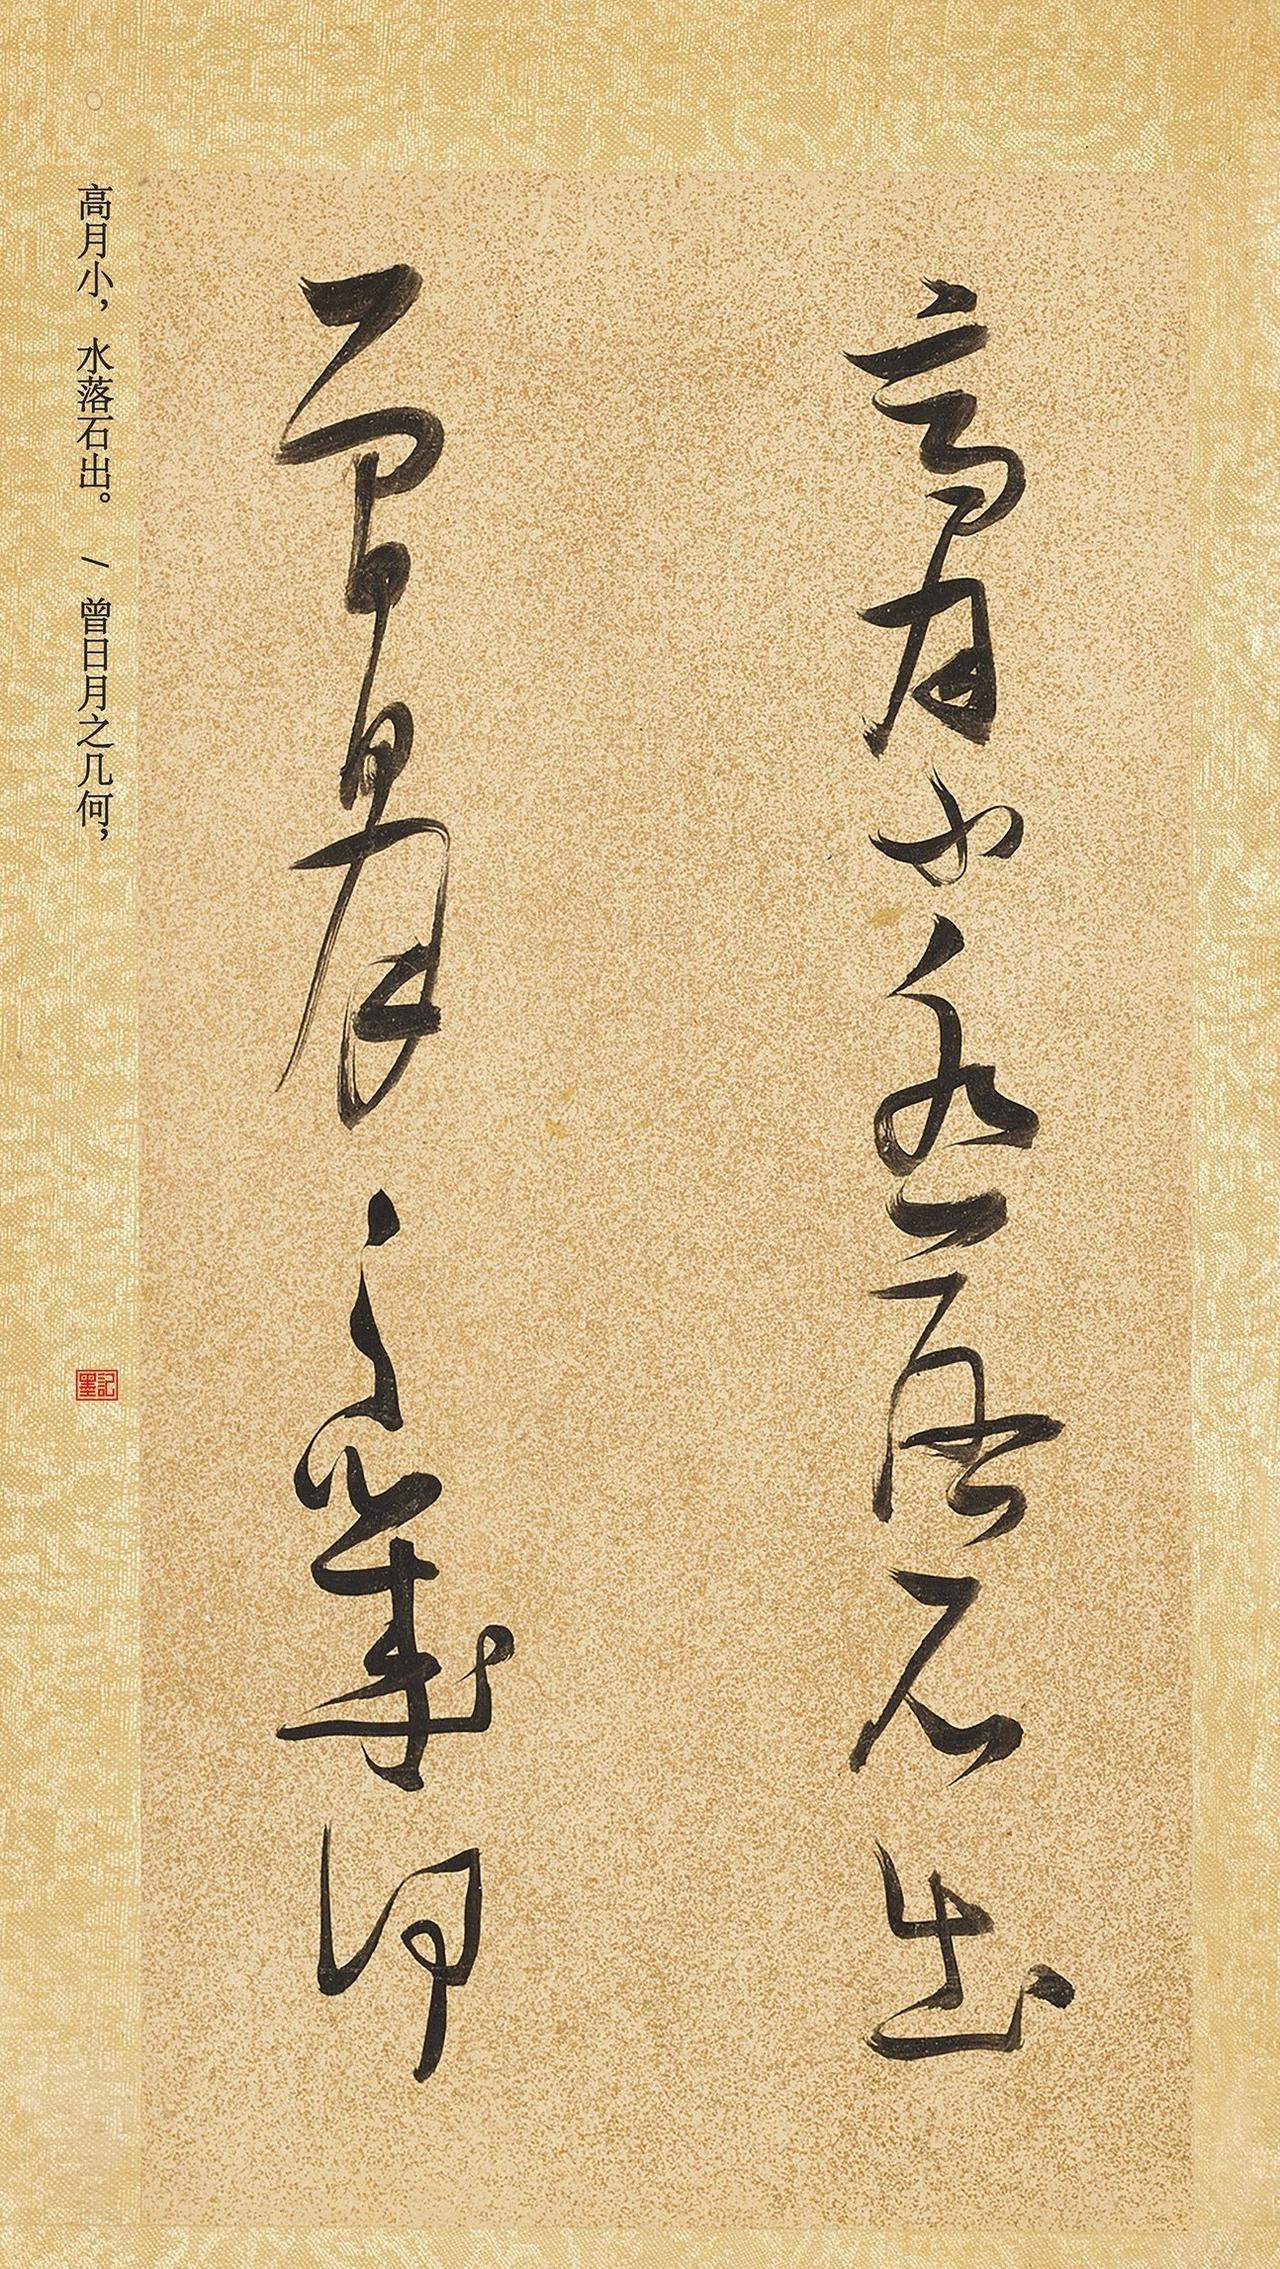 高月小水落石出
曾日月之几何
高月小，水落石出。 / 曾日月之几何，
記墨